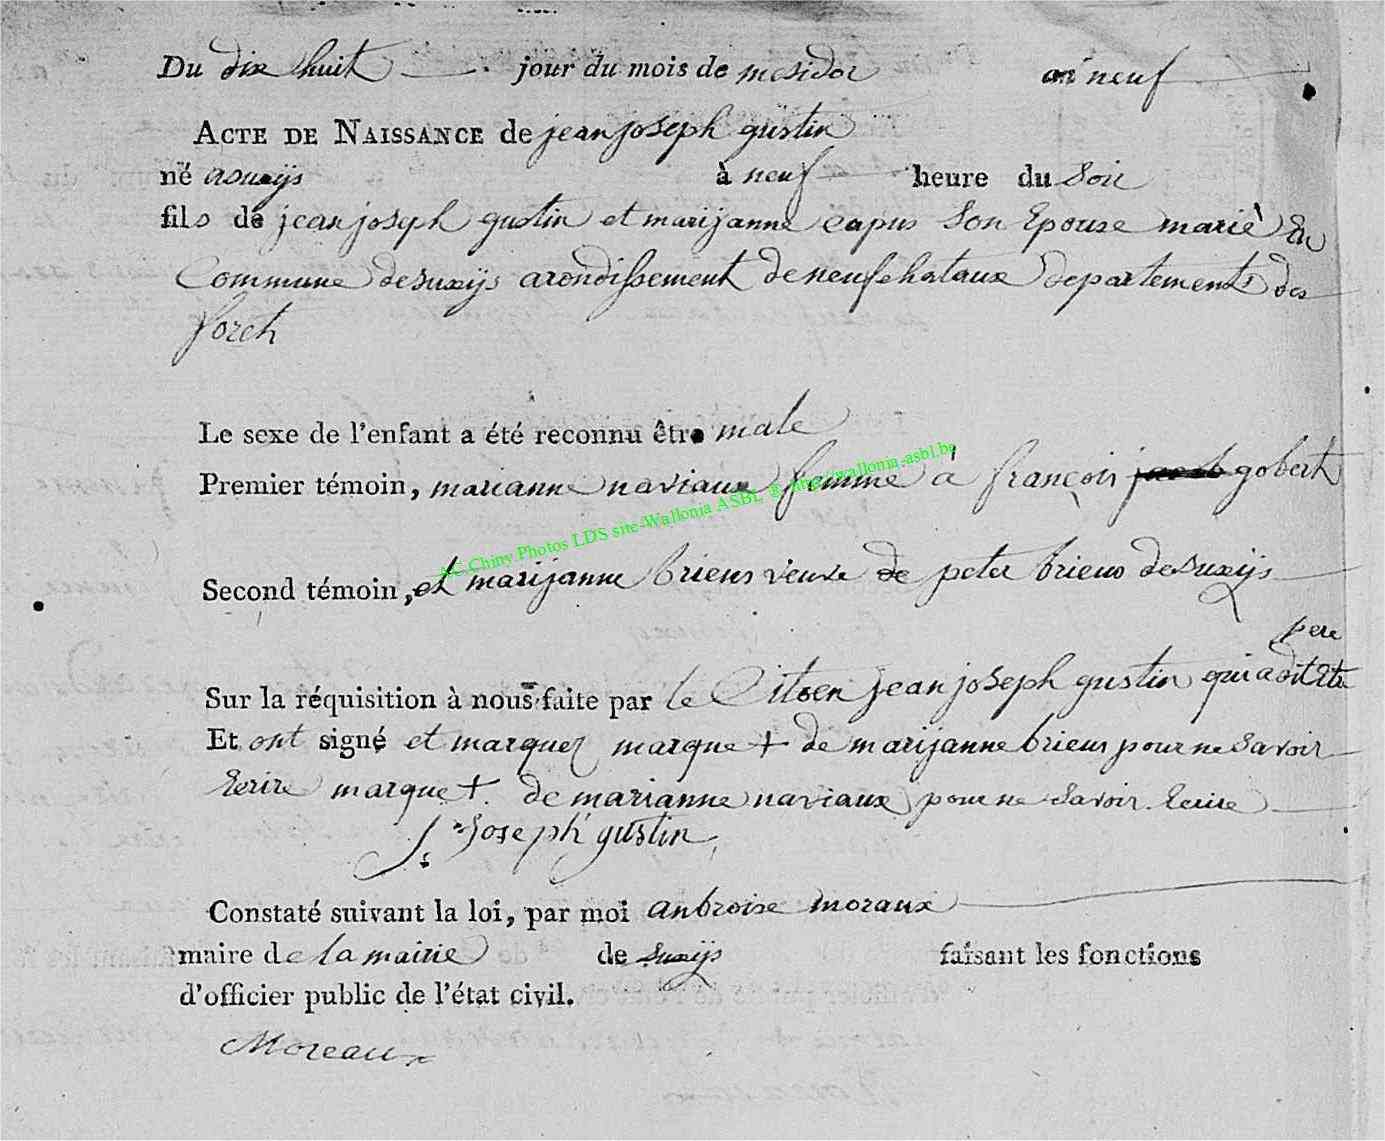 Du dix huit jour du mois de mesidor an neuf
ACTE DE NAISSANCE de jean joseph gustin
né asuxijs à neuf heure du soir
fils de jean joseph gustin et marijanne capus son Epouse marié En
Commune desuxijs arondissement de neufchataux departements des
foreh
Le sexe de l'enfant a été reconnu être male
Premier témoin, marianne naviaux femme à françois gobert
AC Chiny Photos LDS site-Wallonia ASBL @ http://wallonia-asbl.be
Second témoin, et marijanne briens veuve de peter briens desuxijs
pere
Sur la réquisition à nous faite par le Citoen jean joseph gustin qui a dit Etre
Et ont signé et marquez marque + de marijanne briens pour ne savoir
Ecrire marque + de marianne naviaux pour ne savoir Ecrire
J: Joseph gustin
Constaté suivant la loi, par moi anbroise moraux
maire de la mairie de suxijs faisant les fonctions
d'officier public de l'état civil.
Moreaux